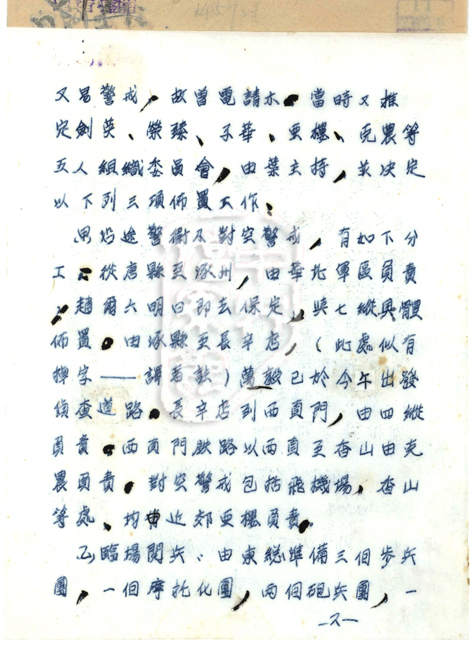 又另警戒，故曾電請木。當時又推
定劍英、榮臻、子華、亞樓、克農等
五人組織委員會，由葉主持，并決定
以下列三項佈置工作。
沿途警衛及對空警戒，有如下分
工：從唐縣至涿州，由華北軍區負責
，趙爾六明日即去保定，與七縱具體
佈置。由涿縣至長辛店，（此處似有
掉字——譯者註）萬毅已於今午出發
偵查道路。長辛店到西直門，由四縱
負責。西直門鉄路以西直至香山由克
農負責。對空警戒包括飛機場，香山
等處、均由近郊亞樓負責。
臨場閱兵：由東總準備三個步兵
團，一個摩托化團，兩個砲兵團，一
—2—